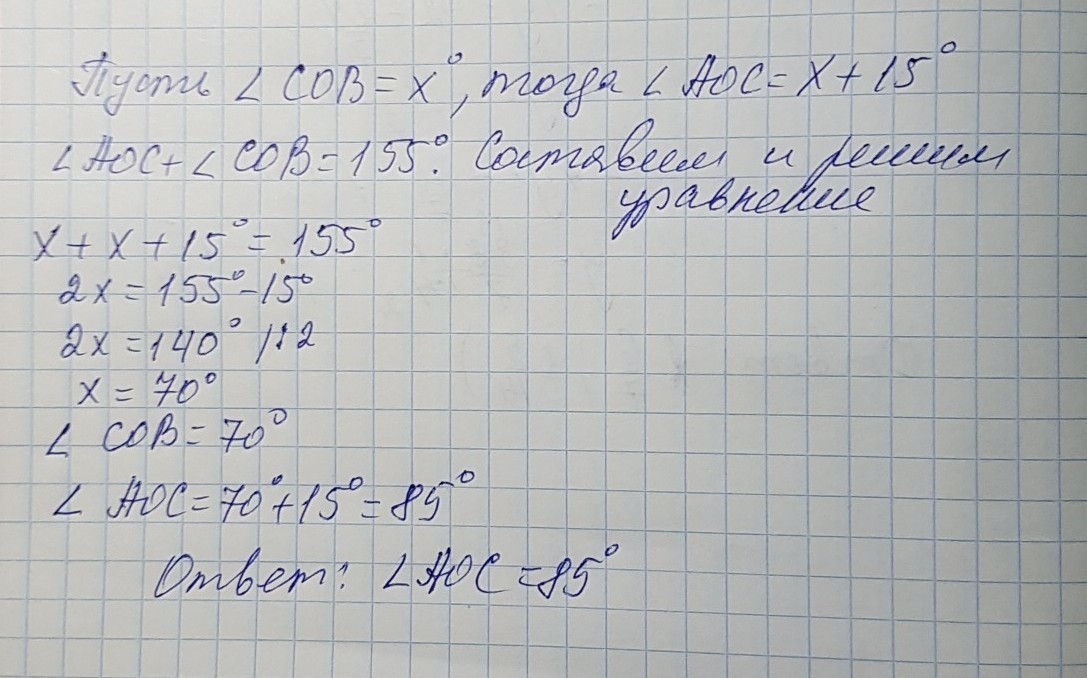 Пусть ∠ COB = x°, тогда ∠ AOC = x + 15°
∠ AOC + ∠ COB = 155°. Составим и решим
уравнение
x + x + 15° = 155°
2x = 155° - 15°
2x = 140° |:2
x = 70°
∠ COB = 70°
∠ AOC = 70° + 15° = 85°
Ответ: ∠ AOC = 85°